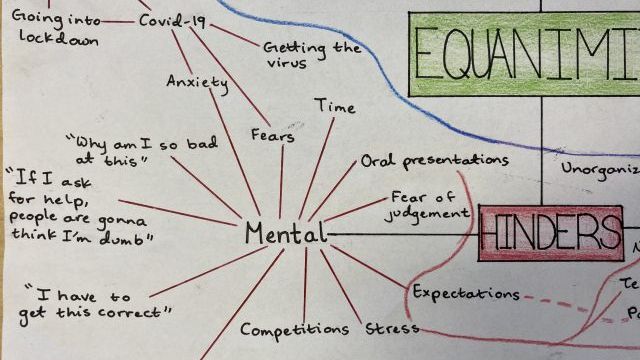 Going into
lockdown
Covid-19
Getting the
virus
EQUANIMI
Anxiety
Time
Fears
"Why am I so bad
at this"
Oral presentations
Unorganiz
"If I ask
for help,
people are gonna
think I'm dumb"
Fear of
judgement
Mental
HINDERS
"I have to
get this correct"
Expectations
Te
Competitions
Stress